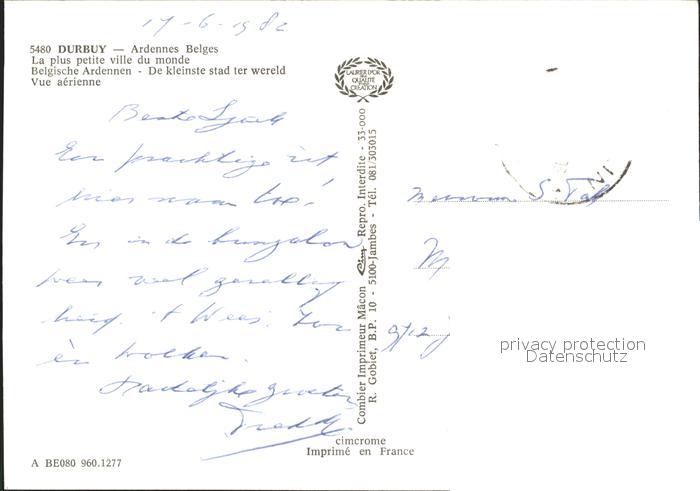 17-6-1982
5480 DURBUY — Ardennes Belges
La plus petite ville du monde
Belgische Ardennen - De kleinste stad ter wereld
Vue aérienne
LAURIER D'OR
DE LA
QUALITÉ
CRÉATION
Beste
Een prachtige rit
hier naar toe!
En in de bungalow
weer veel gezellig
heid. 't Weer: Zon
èn wolken.
Hartelijke groeten
Freddy
Combier Imprimeur Mâcon Cim Repro. Interdite - 33-000
R. Gobiet, B.P. 10 - 5100-Jambes - Tél. 081/303015
Mevrouw S.
privacy protection
Datenschutz
cimcrome
Imprimé en France
A BE080 960.1277